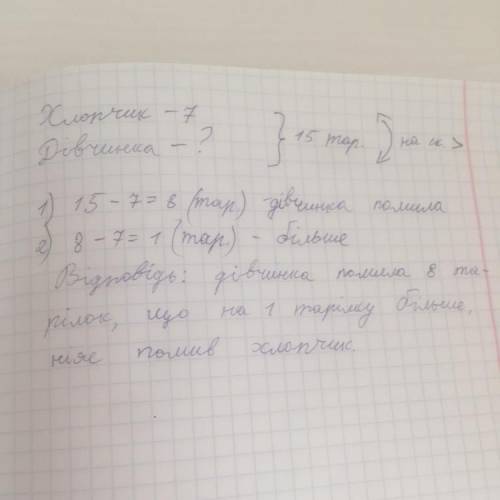 Хлопчик – 7
Дівчинка – ? } 15 тар. на ск. >
1) 15 – 7 = 8 (тар.) – дівчинка помила
2) 8 – 7 = 1 (тар.) – більше
Відповідь: дівчинка помила 8 та-
рілок, що на 1 тарілку більше,
ніж помив хлопчик.